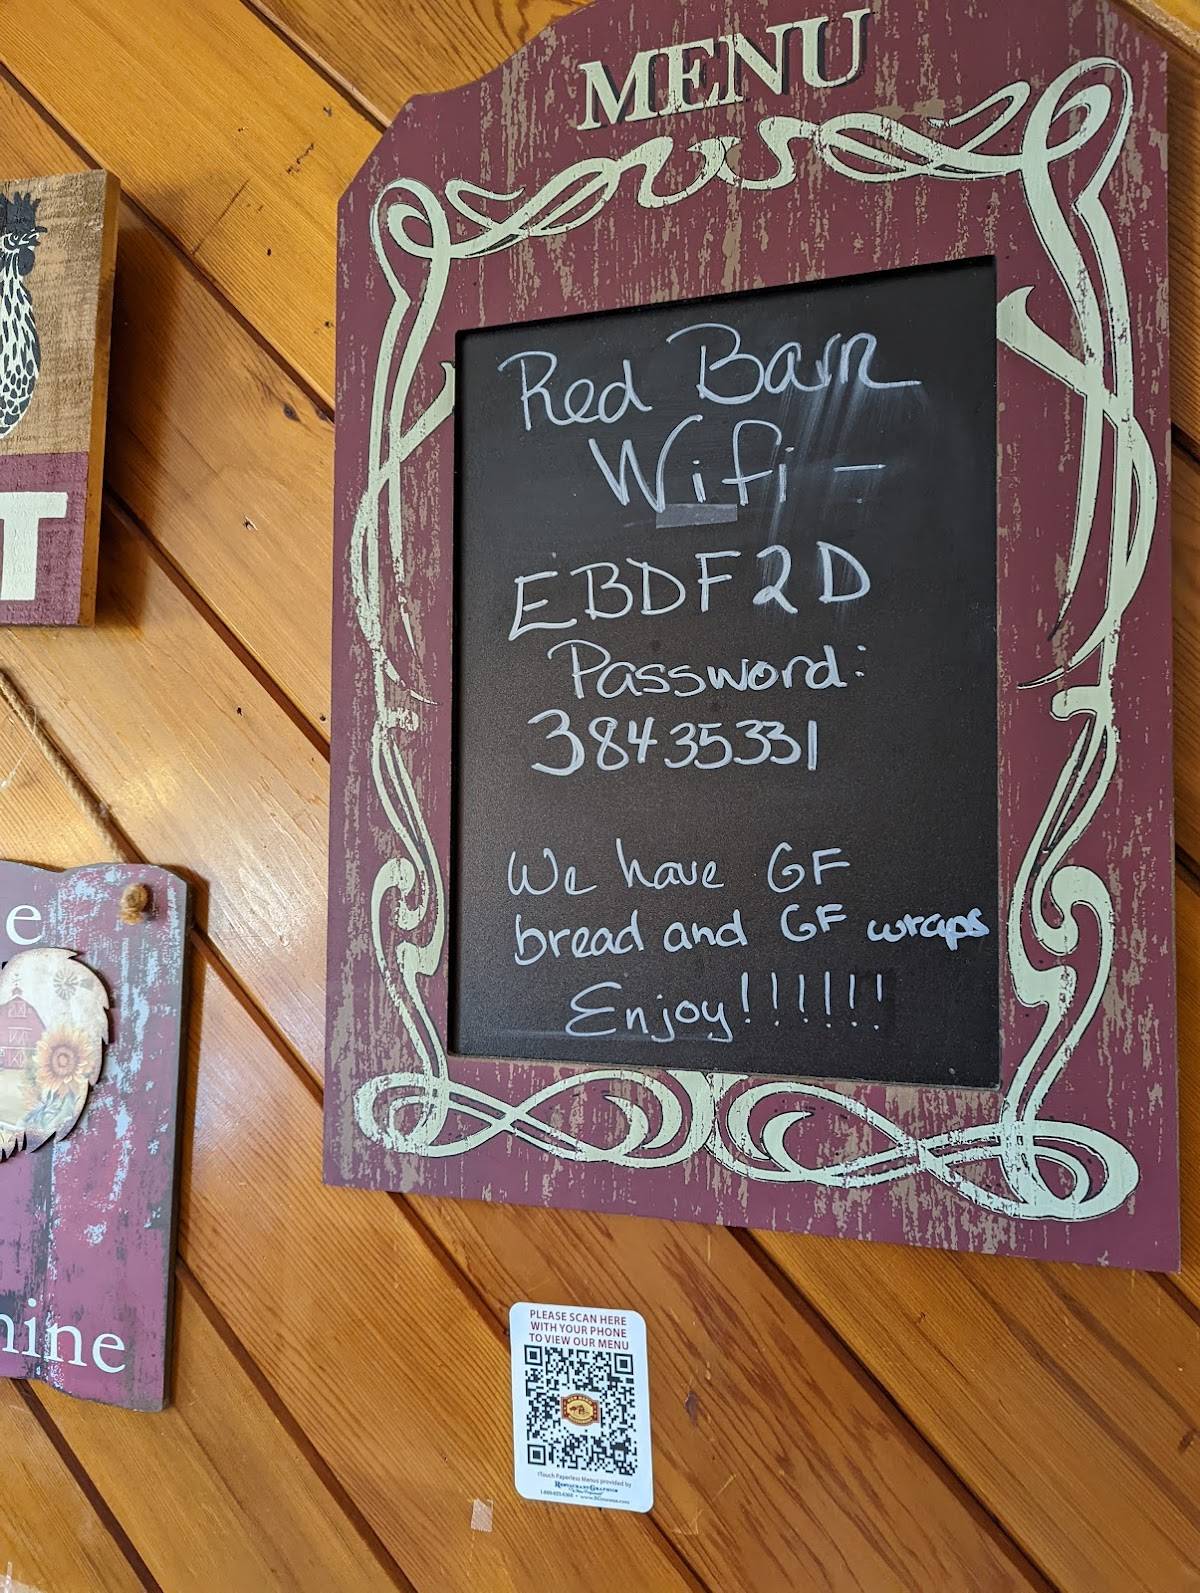 MENU
Red Barn
Wifi -
EBDF2D
Password:
38435331
We have GF
bread and GF wraps
Enjoy!!!!!!
T
e
nine
PLEASE SCAN HERE
WITH YOUR PHONE
TO VIEW OUR MENU
iTouch Paperless Menus provided by
RESTAURANTGRAPHICS